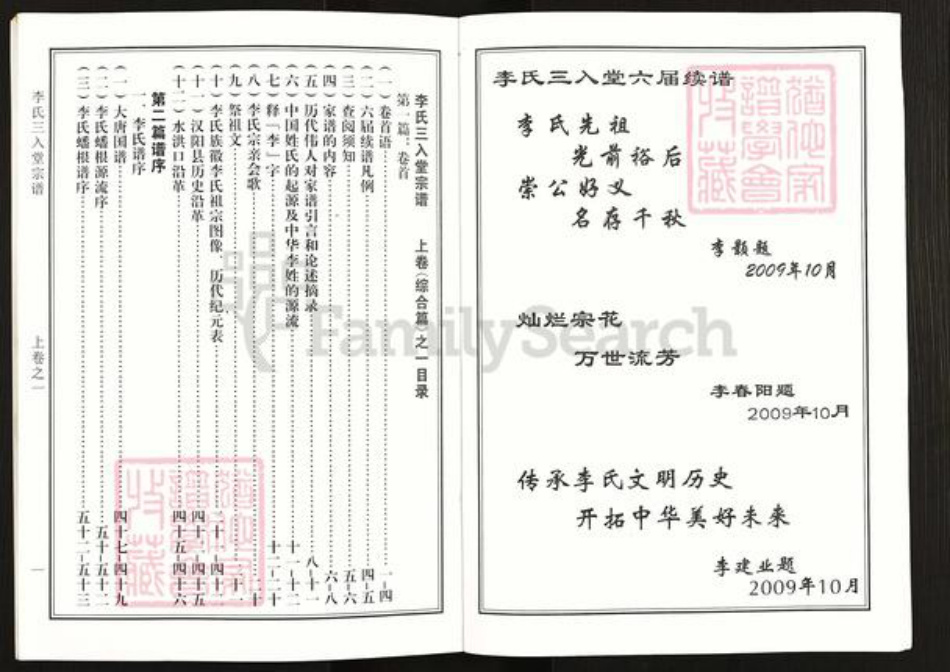 李氏三入堂六届续谱
李氏先祖
光前裕后
崇公好义
名存千秋
李颢题
2009年10月
灿烂宗花
万世流芳
李春阳题
2009年10月
传承李氏文明历史
开拓中华美好未来
李建业题
2009年10月
李氏三入堂宗谱 上卷(综合篇)之一目录
第一篇、卷首
(一)卷首语 一-四
(二)六届续谱凡例 四-五
(三)查阅须知 五-六
(四)家谱的内容 六-八
(五)历代伟人对家谱引言和论述摘录 八-十一
(六)中国姓氏的起源及中华李姓的源流 十一-十二
(七)释「李」字 十二-二十
(八)李氏宗亲会歌
(九)祭祖文
(十)李氏族徽李氏祖宗图像、历代纪元表
(十一)汉阳县历史沿革
(十二)水洪口沿革 四十五-四十六
第二篇谱序
一、李氏谱序
(一)大唐国谱 四十七-四十九
(二)李氏蟠根源流序 五十-五十二
(三)李氏蟠根谱序 五十二-五十三
李氏三入堂宗谱
上卷之一
一
FamilySearch